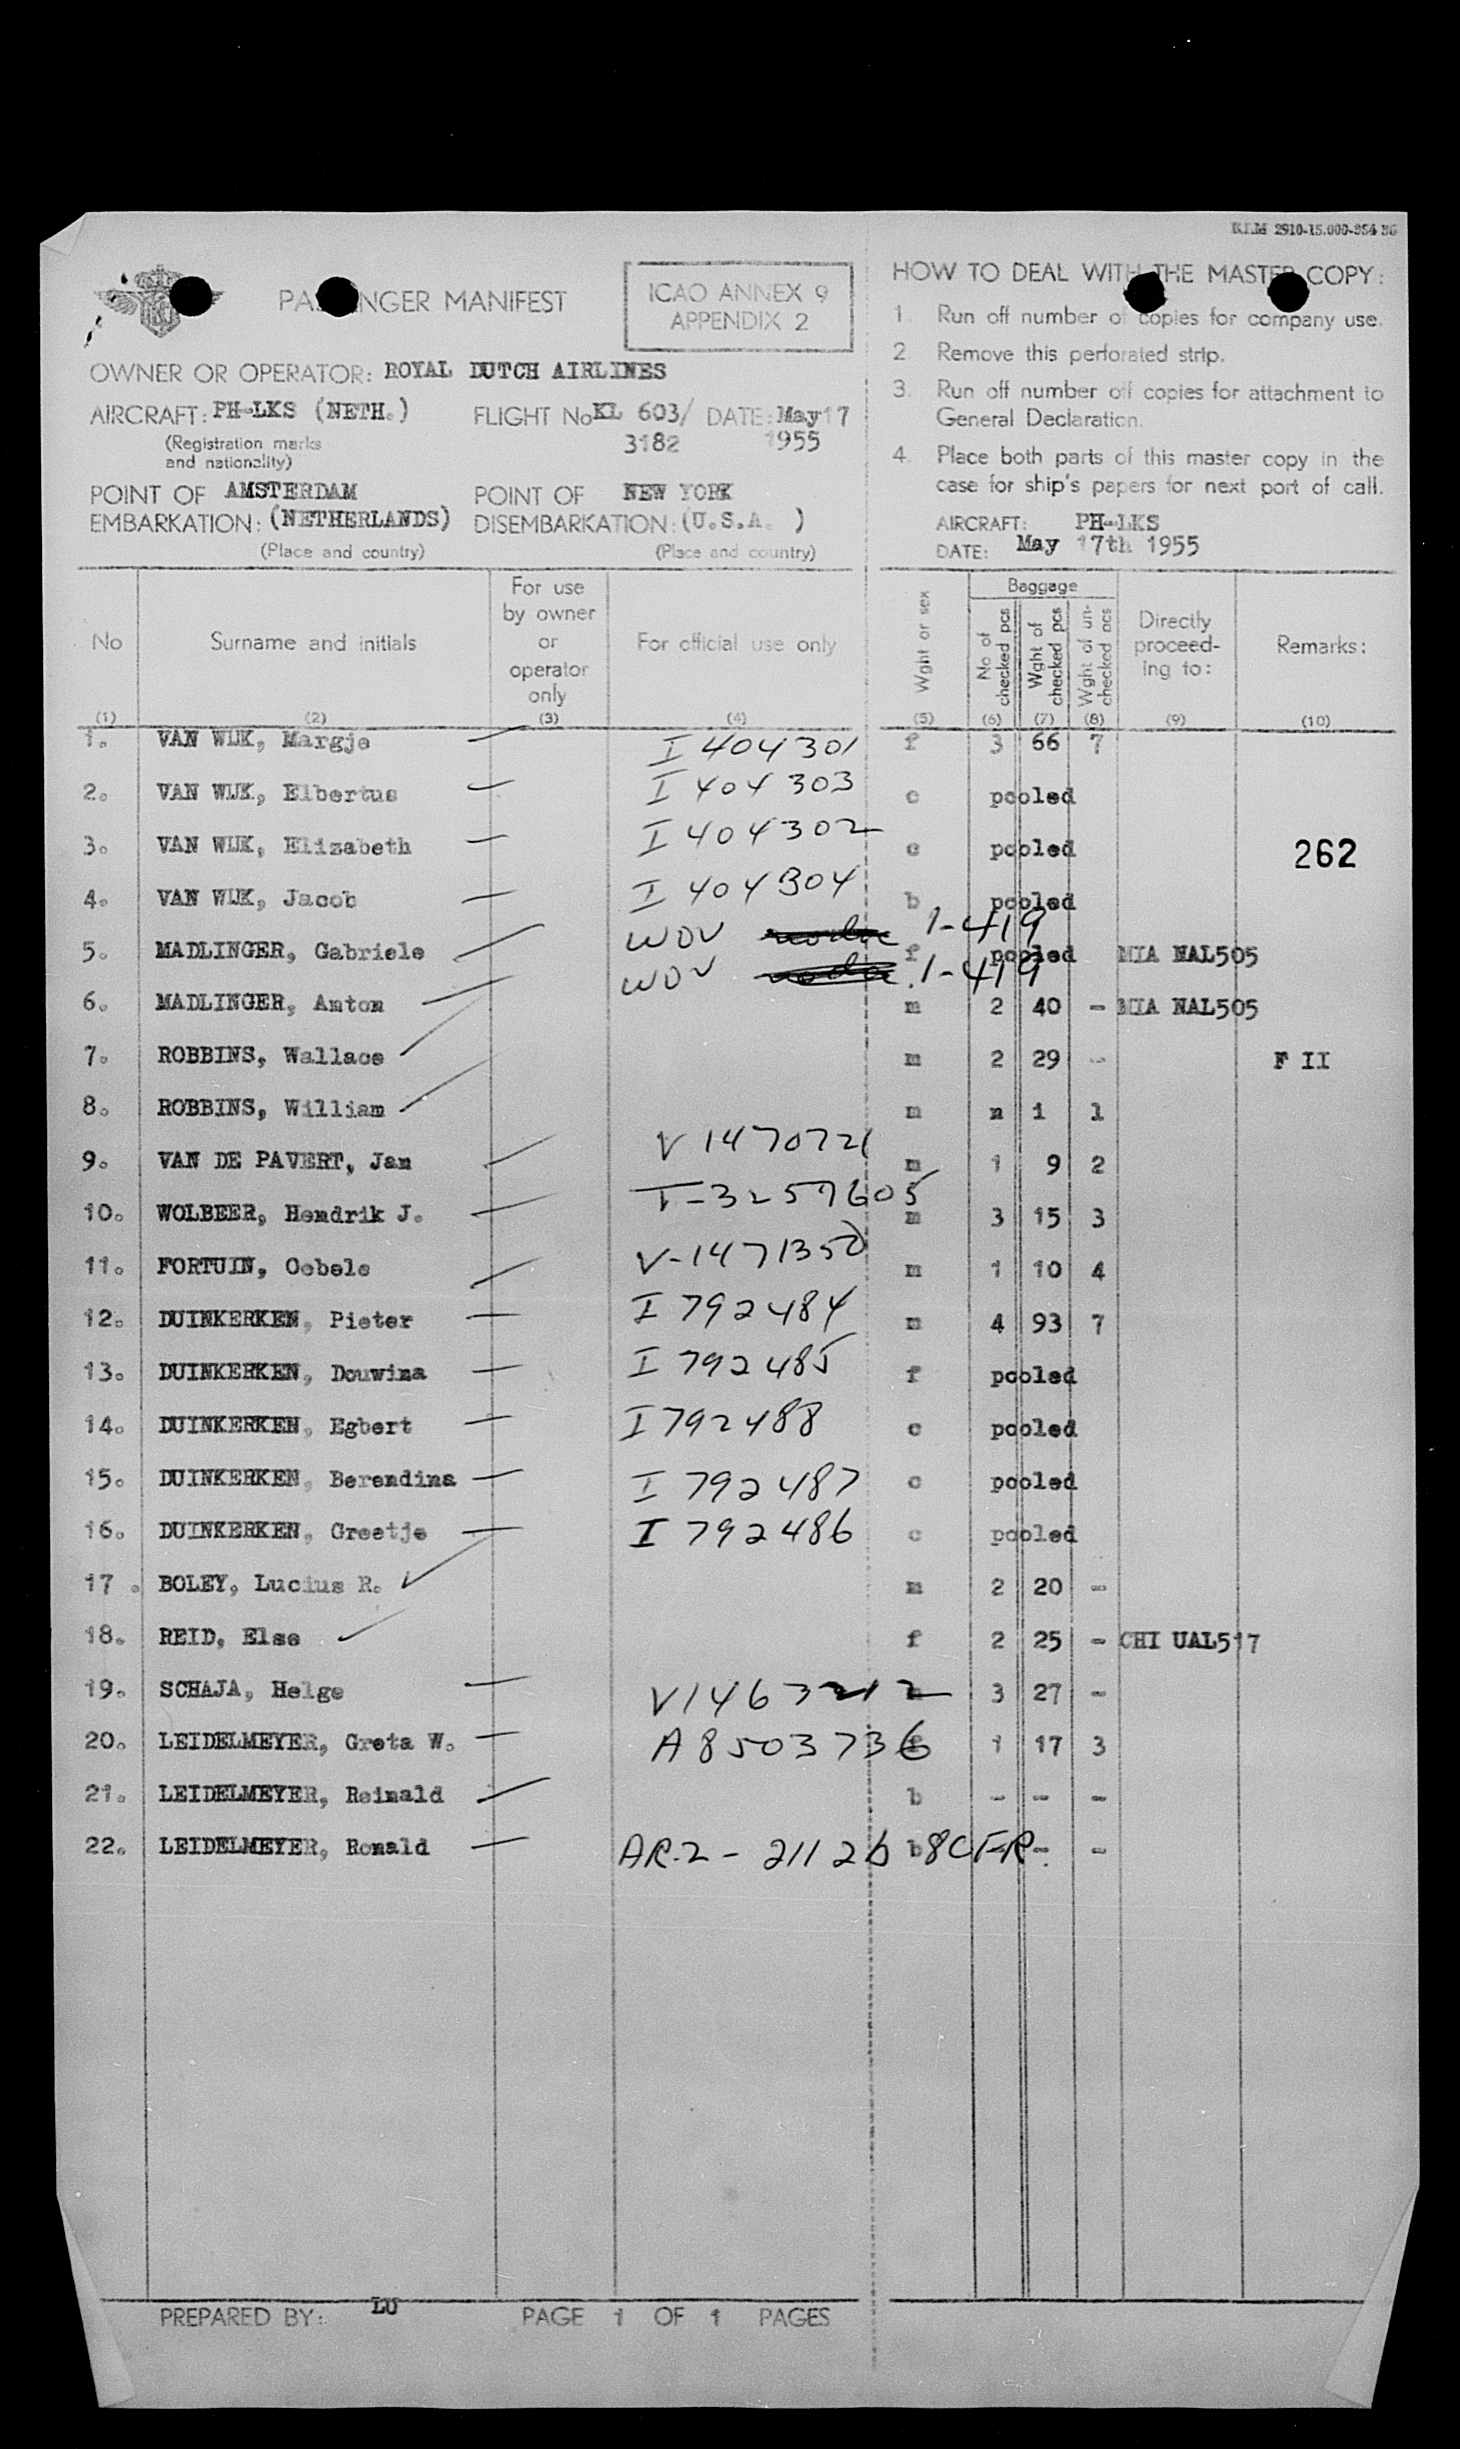 KLM 2910-15.000-954 BG
PASSENGER MANIFEST
ICAO ANNEX 9
APPENDIX 2
OWNER OR OPERATOR: ROYAL DUTCH AIRLINES
AIRCRAFT: PH-LKS (NETH.) FLIGHT No KL 603/ DATE: May 17
(Registration marks and nationality) 3182 1955
POINT OF EMBARKATION: AMSTERDAM (NETHERLANDS) POINT OF DISEMBARKATION: NEW YORK (U.S.A. )
(Place and country) (Place and country)
HOW TO DEAL WITH THE MASTER COPY:
1. Run off number of copies for company use.
2. Remove this perforated strip.
3. Run off number off copies for attachment to
General Declaration.
4. Place both parts of this master copy in the
case for ship's papers for next port of call.
AIRCRAFT: PH-LKS
DATE: May 17th 1955
No Surname and initials For use by owner or operator only For official use only Wght or sex Baggage No of checked pcs Wght of checked pcs Wght of un-checked pcs Directly proceed-ing to: Remarks:
(1) (2) (3) (4) (5) (6) (7) (8) (9) (10)
1. VAN WIJK, Margje I 404301 f 3 66 7
2. VAN WIJK, Elbertus I 404303 c pooled
3. VAN WIJK, Elizabeth I 404302 c pooled 262
4. VAN WIJK, Jacob I 404304 b pooled
5. MADLINGER, Gabriele WOV 1-419 f pooled MIA NAL505
6. MADLINGER, Anton WOV 1-419 m 2 40 - MIA NAL505
7. ROBBINS, Wallace m 2 29 - F II
8. ROBBINS, William m n i l
9. VAN DE PAVERT, Jan V 1470721 m 1 9 2
10. WOLBEER, Hendrik J. T-3257605 m 3 15 3
11. FORTUIN, Oebele V-1471350 m 1 10 4
12. DUINKERKEN, Pieter I 792484 m 4 93 7
13. DUINKERKEN, Douwina I 792485 f pooled
14. DUINKERKEN, Egbert I 792488 c pooled
15. DUINKERKEN, Berendina I 792487 c pooled
16. DUINKERKEN, Greetje I 792486 c pooled
17. BOLEY, Lucius R. m 2 20 -
18. REID, Else f 2 25 - CHI UAL517
19. SCHAJA, Helge V1463212 3 27 -
20. LEIDELMEYER, Greta W. A8503736 f 1 17 3
21. LEIDELMEYER, Reinald b - - -
22. LEIDELMEYER, Ronald AR-2 - 211 2b 8CFR b - -
PREPARED BY: LU PAGE 1 OF 1 PAGES